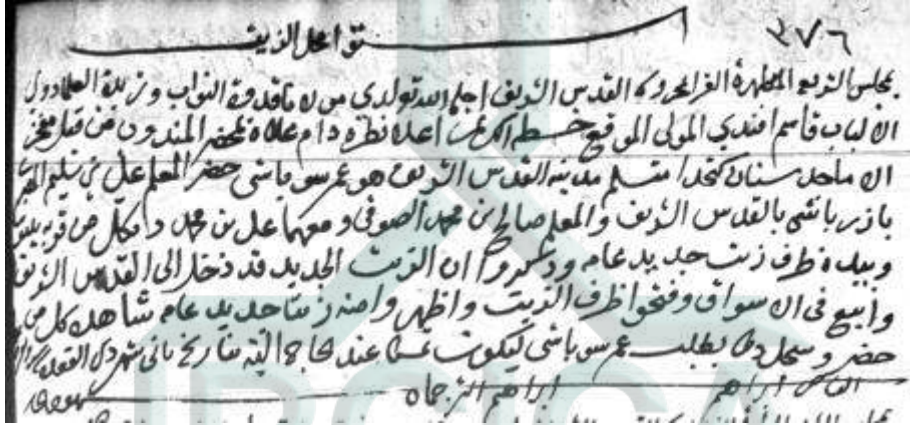 ٣٧٦
تواجل الزيت
بمجلس الشرع المطهرة الغرا بمحروسة القدس الشريف اجله الله تعالى لدى مولانا قدوة النواب وزبدة العلما ذوي
الالباب قاسم افندي المولى الموقع خطه الكريم اعلاه نظره دام علاه لمحضر المندوب من قبل فخر
الاماجد سنان كتخدا متسلم مدينة القدس الشريف هو عمر سوباشي حضر المعلم علي بن سليم
بازرباشي بالقدس الشريف والمعلم صالح بن محمد الصوفي ومعهما علي بن محمد من قرية
وبيده ظرف زيت جديد عام وذكروا ان الزيت الجديد قد دخل الى القدس الشريف
وابيع في الاسواق وفتحوا ظرف الزيت واظهروا منه زيتا جديد عام شاهده كل من
حضر وسجل ذلك بطلب عمر سوباشي ليكون عند الحاجة اليه بتاريخ ثاني شهر ذي القعدة
ابراهيم ابراهيم الترجمان